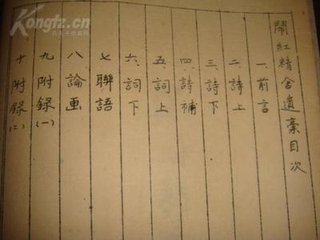 鬧紅精舍遺稾目次
一、前言
二、詩上
三、詩下
四、詩補
五 詞上
六、詞下
七 聯語
八 論画
九 附録(一)
十 附録(二)
Kongfz.cn